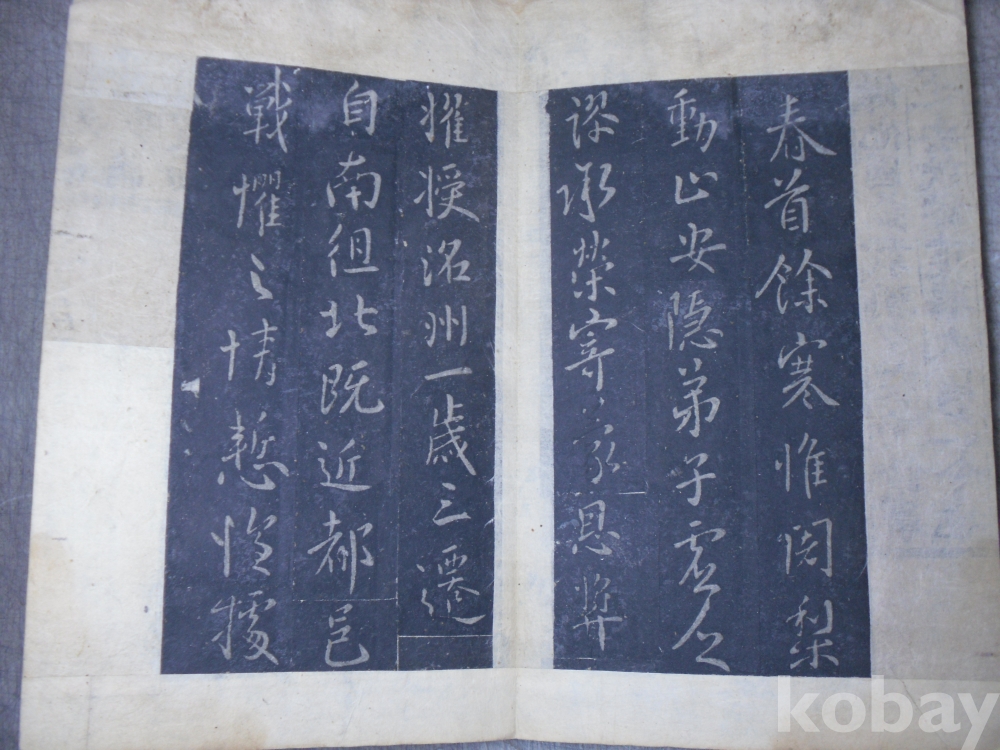 春首餘寒惟闍梨
動止安隱弟子虛乏
謬承榮寄蒙恩獎
擢授洺州一歲三遷
自南徂北既近都邑
戰懼之情慙惶據
kobay